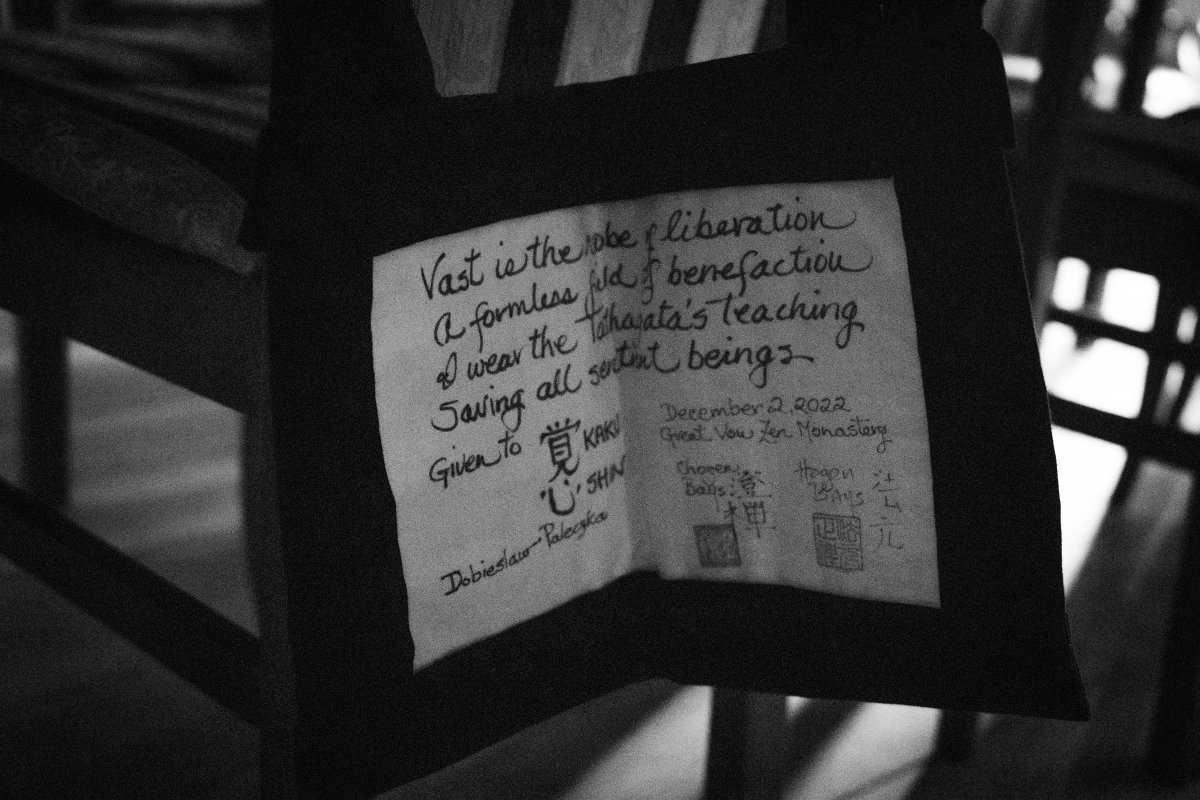 Vast is the robe of liberation
A formless field of benefaction
I wear the Tathagata's teaching
Saving all sentient beings
Given to 覚 KAKU
心 SHIN
Dobieslaw Paleczka
December 2, 2022
Great Vow Zen Monastery
Chozen
Bays
Hogen
Bays
禅
法
元